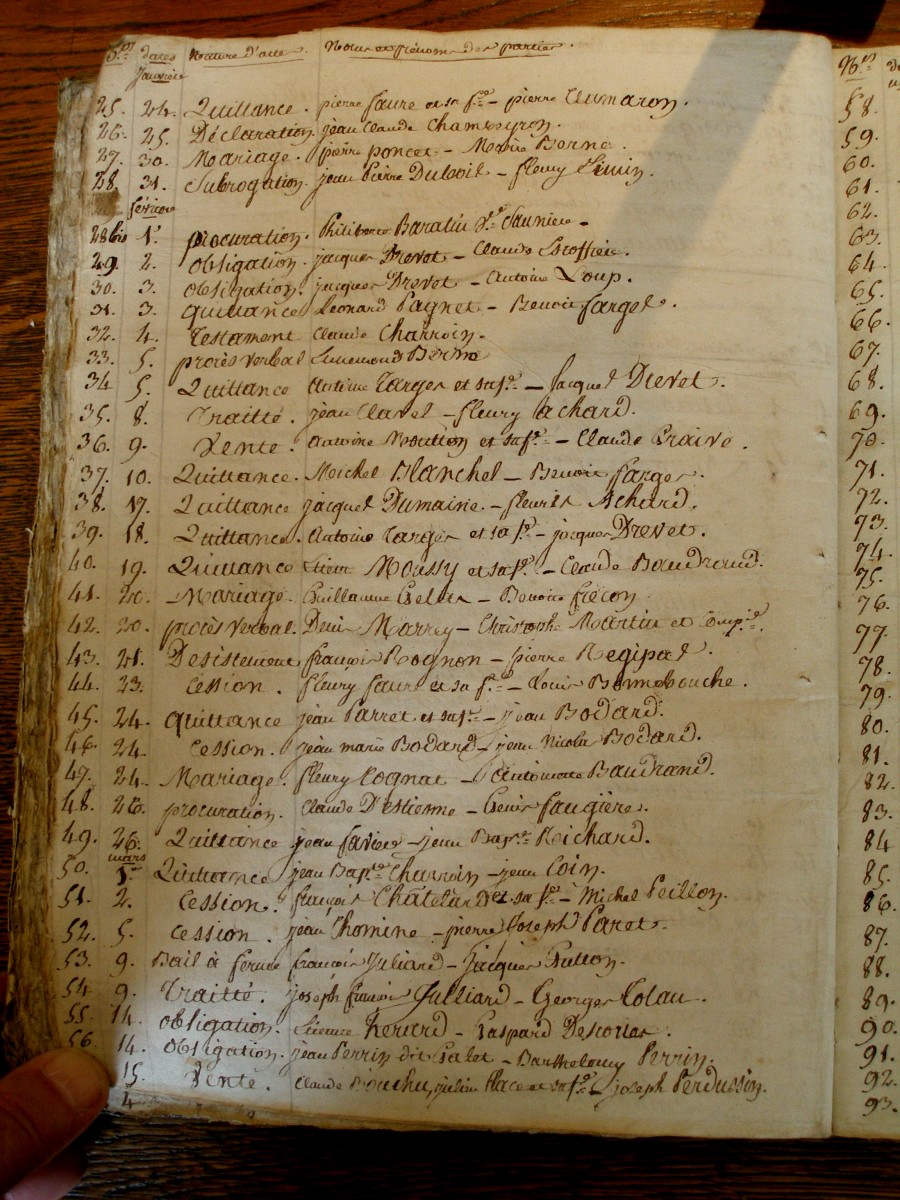 N.os dates Nature d'actes. Noms et prénoms des parties.
Janvier
25. 24. Quittance. pierre faure et sa f.e – pierre Clumaron.
26. 25. Déclaration. jean Claude Chambeyron.
27. 30. Mariage. pierre poncet – Marie Berne.
28. 31. Subrogation. jean Pierre Duboil – fleury
février
28 bis 1.r procuration. Philiberte Baratin V.e Saunier –
29. 2. Obligation. jacques Drevet – Claude Escoffier.
30. 3. obligation. jacques Drevet – Antoine Loup.
31. 3. quittance Léonard Pagnet – Benoit farget.
32. 4. Testament Claude Charroin.
33. 5. procès verbal
34 5. Quittance Antoine Targes et sa f.e – Jacques Drevet.
35. 8. Traitté. jean Clavel – fleury achard.
36. 9. Vente. Antoine Moutton et sa f.e – Claude Praire.
37. 10. Quittance. Michel Blanchel – Benoit farges.
38. 17. Quittance jacques Dumaine – fleurie Achard.
39. 18. Quittance. Antoine Targes et sa f.e – jacques Drevet.
40. 19. Quittance Etienne Moussy et sa f.e – Claude Boudroud.
41. 20. Mariage. Guillaume – Benoite frécon.
42. 20. procès verbal. Denis Marrey – Christophe Martin et Comp.e.
43. 21. Desistement françois Rognon – pierre Regipas.
44. 23. Cession. fleury faure et sa f.e – Louis Bonnebouche.
45. 24. quittance jean Parret et sa f.e – jean Bodard.
46. 24. Cession. jean marie Bodard – jean Nicolas Bodard.
47. 24. Mariage. fleury Cognat – Antoinette Baudrand.
48. 26. procuration. Claude D'Estienne – Denis faugière.
49. 26. Quittance jean favier – jean Bap.te Richard.
mars
50. 1.r Quittance jean Bap.te Charroin – jean Coin.
51. 2. Cession. françois Châtelard et sa f.e – Michel Peillon.
52. 5. cession. jean Thomine – pierre Joseph Paret.
53. 9. Bail à ferme françois Juliard – Jacques Dutton.
54 9. Traitté. joseph françois Julliard – Georges Colau.
55. 14. obligation. Etienne Renard – Gaspard Descotes.
56. 14. obligation. jean Perrin dit Galet – Barthelemy Perrin.
15. Vente. Claude Bouchu, julien Place et sa f.e – joseph Perdussin.
4
N.os
58.
59.
60.
61.
62.
63.
64.
65.
66.
67.
68.
69.
70.
71.
72.
73.
74.
75.
76.
77.
78.
79.
80.
81.
82.
83.
84
85.
86.
87.
88.
89.
90.
91.
92.
93.